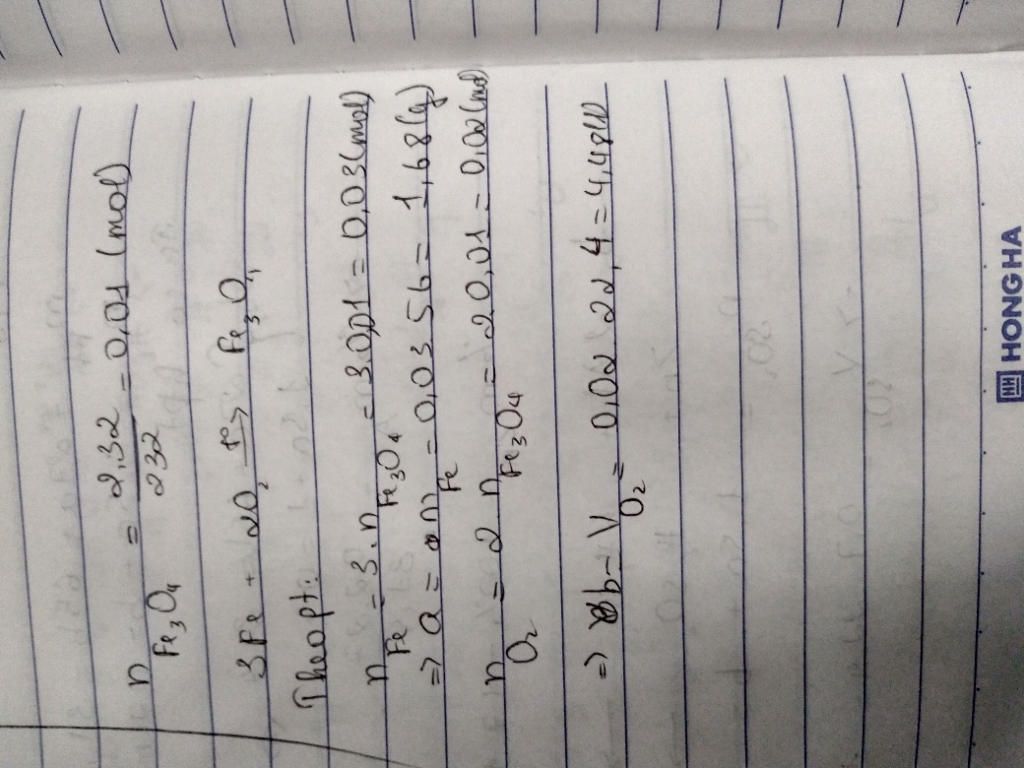 n Fe3O4 = 2,32 / 232 = 0,01 (mol)
3Fe + 2O2 t° → Fe3O4
Theo pt:
n Fe = 3. n Fe3O4 = 3.0,01 = 0,03 (mol)
=> a = m Fe = 0,03 56 = 1,68 (g)
n O2 = 2 n Fe3O4 = 2 0,01 = 0,02 (mol)
=> b = V O2 = 0,02 22,4 = 4,48 (l)
HONG HA